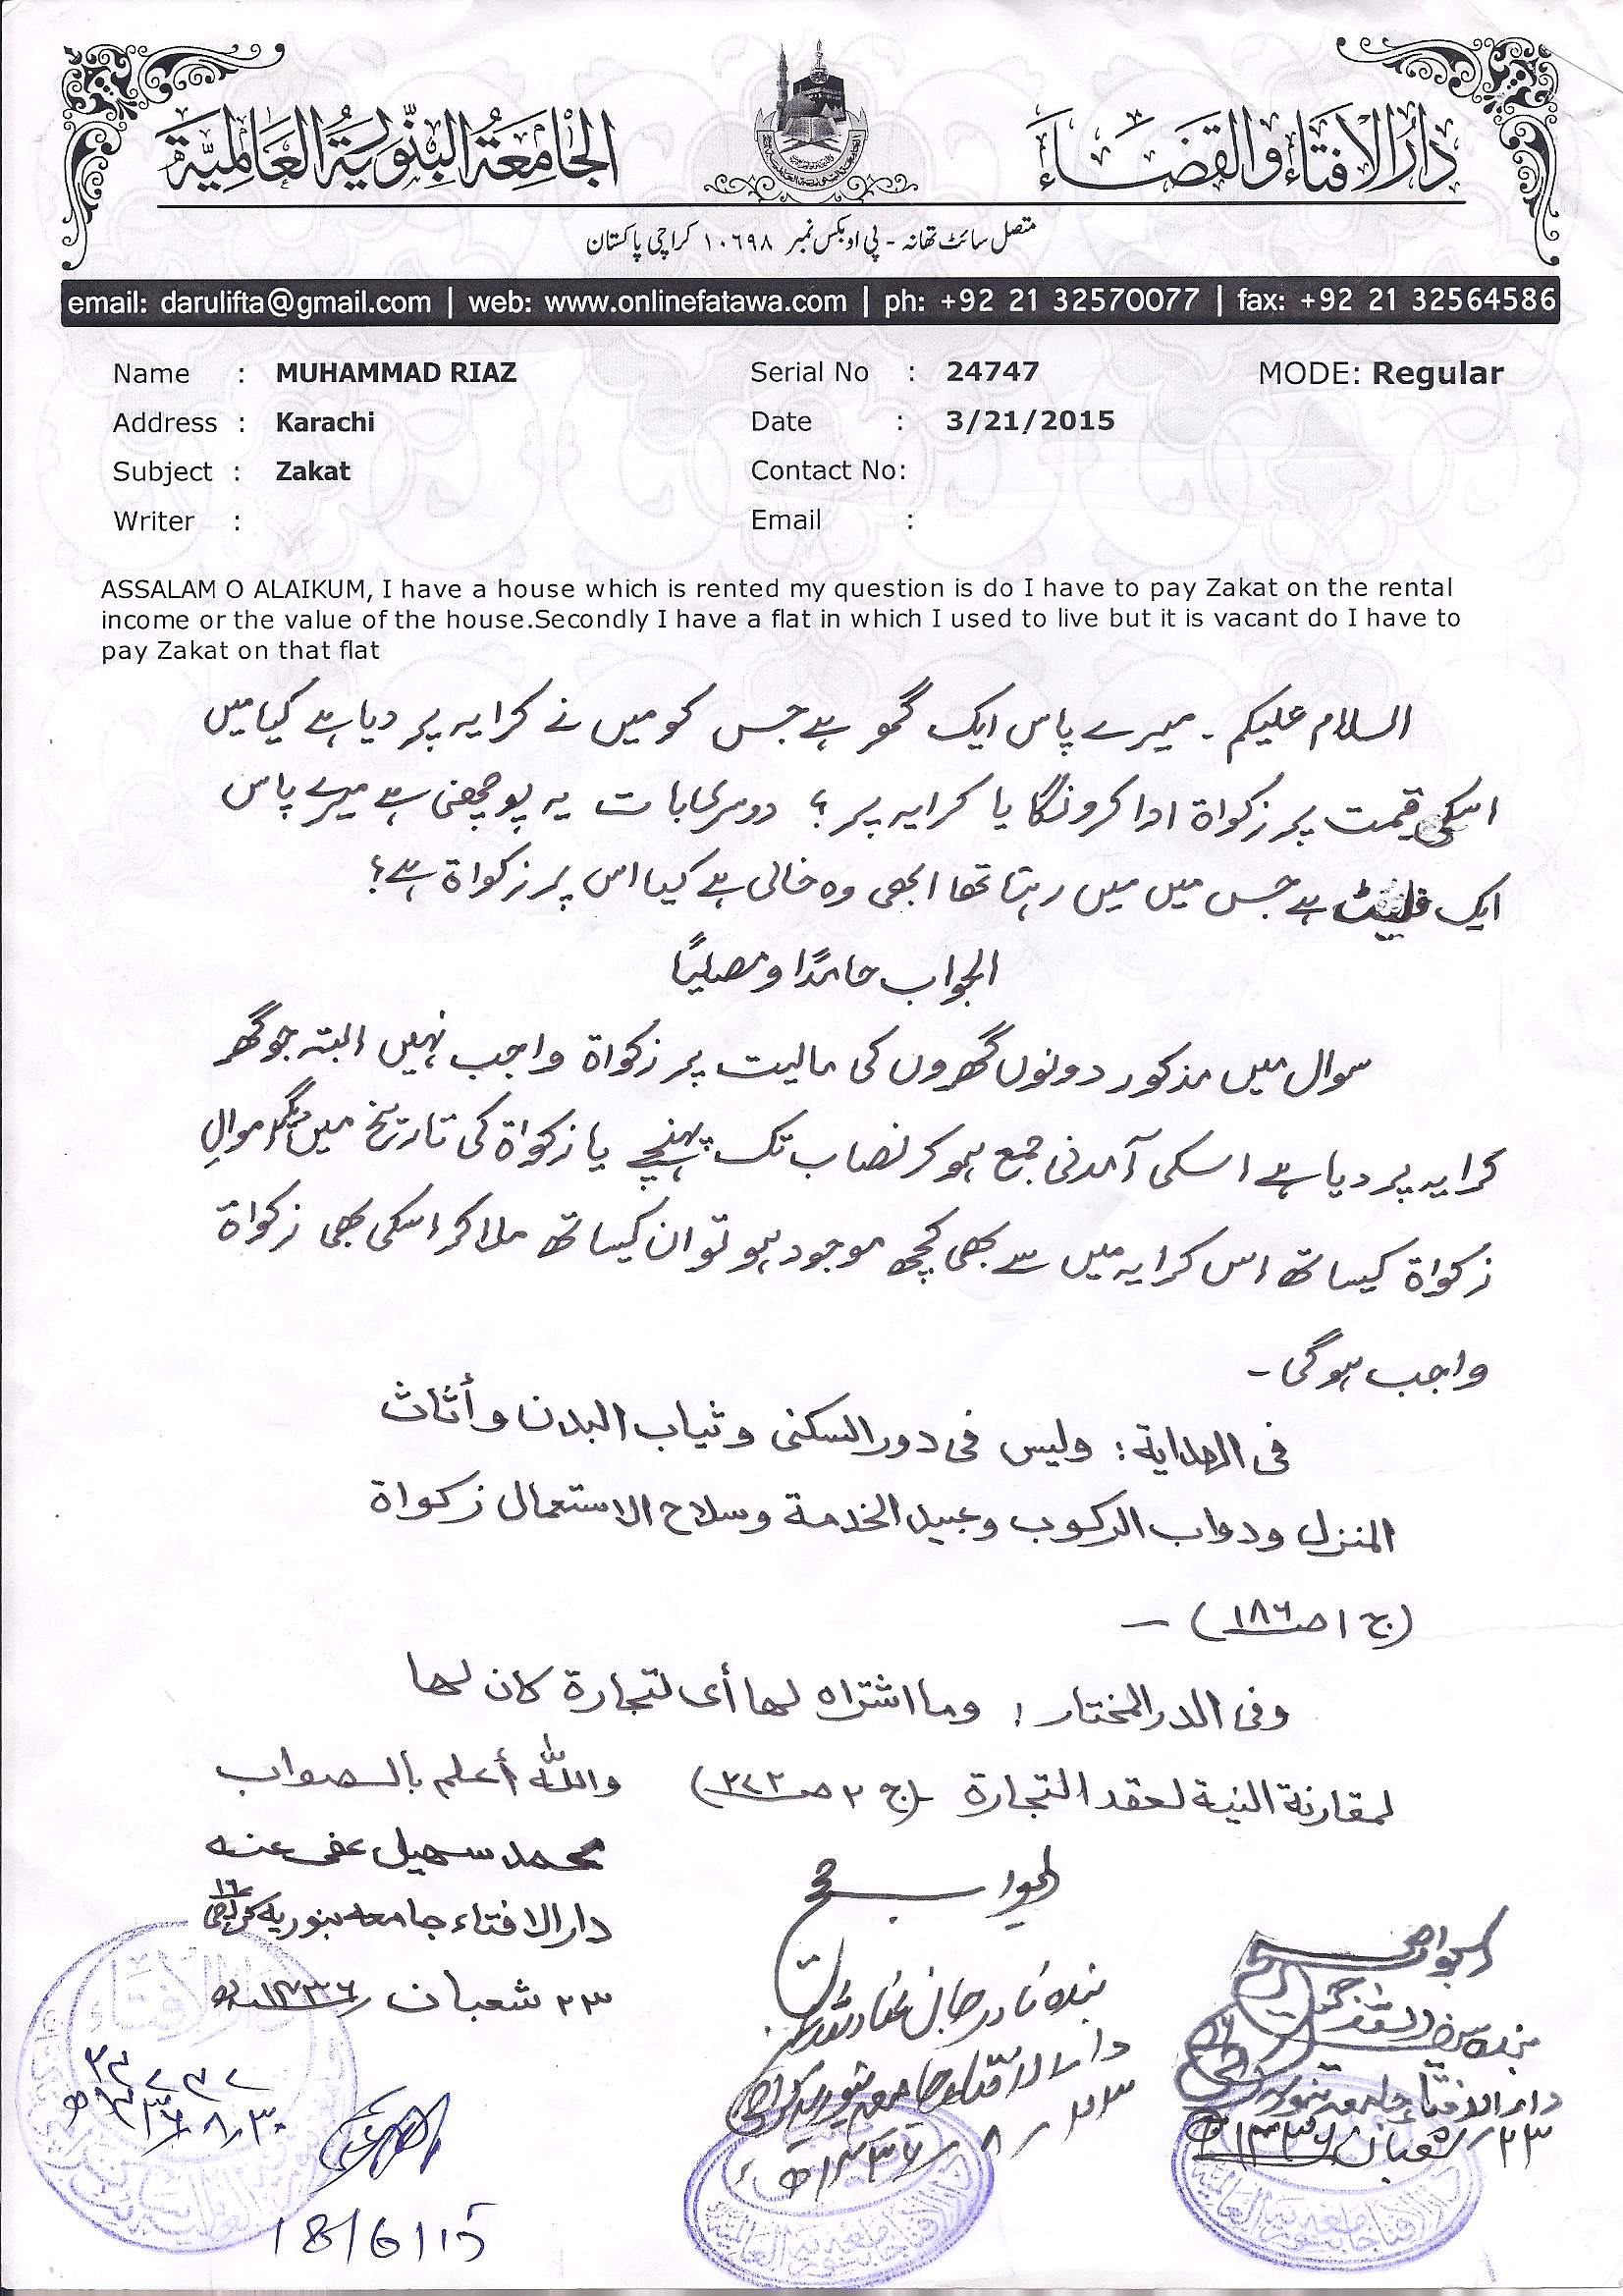 دارُالافتاء والقضاء
الجامعة البنّورية العالمية
متصل سائٹ تھانہ - پی او بکس نمبر ۱۰۶۹۸ کراچی پاکستان
email: darulifta@gmail.com | web: www.onlinefatawa.com | ph: +92 21 32570077 | fax: +92 21 32564586
Name : MUHAMMAD RIAZ Serial No : 24747 MODE: Regular
Address : Karachi Date : 3/21/2015
Subject : Zakat Contact No:
Writer : Email :
ASSALAM O ALAIKUM, I have a house which is rented my question is do I have to pay Zakat on the rental
income or the value of the house.Secondly I have a flat in which I used to live but it is vacant do I have to
pay Zakat on that flat
السلام علیکم ۔ میرے پاس ایک گھر ہے جس کو میں نے کرایہ پر دیا ہے کیا میں
اسکی قیمت پر زکواۃ ادا کرونگا یا کرایہ پر ؟ دوسری بات یہ پوچھنی ہے میرے پاس
ایک فلیٹ ہے جس میں میں رہتا تھا ابھی وہ خالی ہے کیا اس پر زکواۃ ہے؟
الجواب حامدًا ومصلیًا
سوال میں مذکور دونوں گھروں کی مالیت پر زکواۃ واجب نہیں البتہ جو گھر
کرایہ پر دیا ہے اسکی آمدنی جمع ہو کر نصاب تک پہنچے یا زکواۃ کی تاریخ میں دیگر اموالِ
زکواۃ کیساتھ اس کرایہ میں سے بھی کچھ موجود ہو تو ان کیساتھ ملا کر اسکی بھی زکواۃ
واجب ہوگی ۔
فی الهداية : وليس فی دور السكنى وثياب البدن وأثاث
المنزل ودواب الركوب وعبيد الخدمة وسلاح الاستعمال زكواة
(ج ۱ صـ ۱۸۶) —
وفی الدر المختار : وما اشتراه لها أی لتجارة كان لها
لمقارنة النية لعقد التجارة (ج ۲ صـ) والله أعلم بالصواب
محمد سهيل عفی عنه
دار الافتاء جامعہ بنوریہ کراچی ۱۶
۲۳ شعبان ۱۴۳۶ھ
الجواب صحیح
بندہ نادر جان
دار الافتاء جامعہ بنوریہ کراچی
۲۳/۸/۱۴۳۶ھ
الجواب صحیح
بندہ سیف اللہ
دار الافتاء جامعہ بنوریہ
۲۳/شعبان/۱۴۳۶ھ
18/6/15